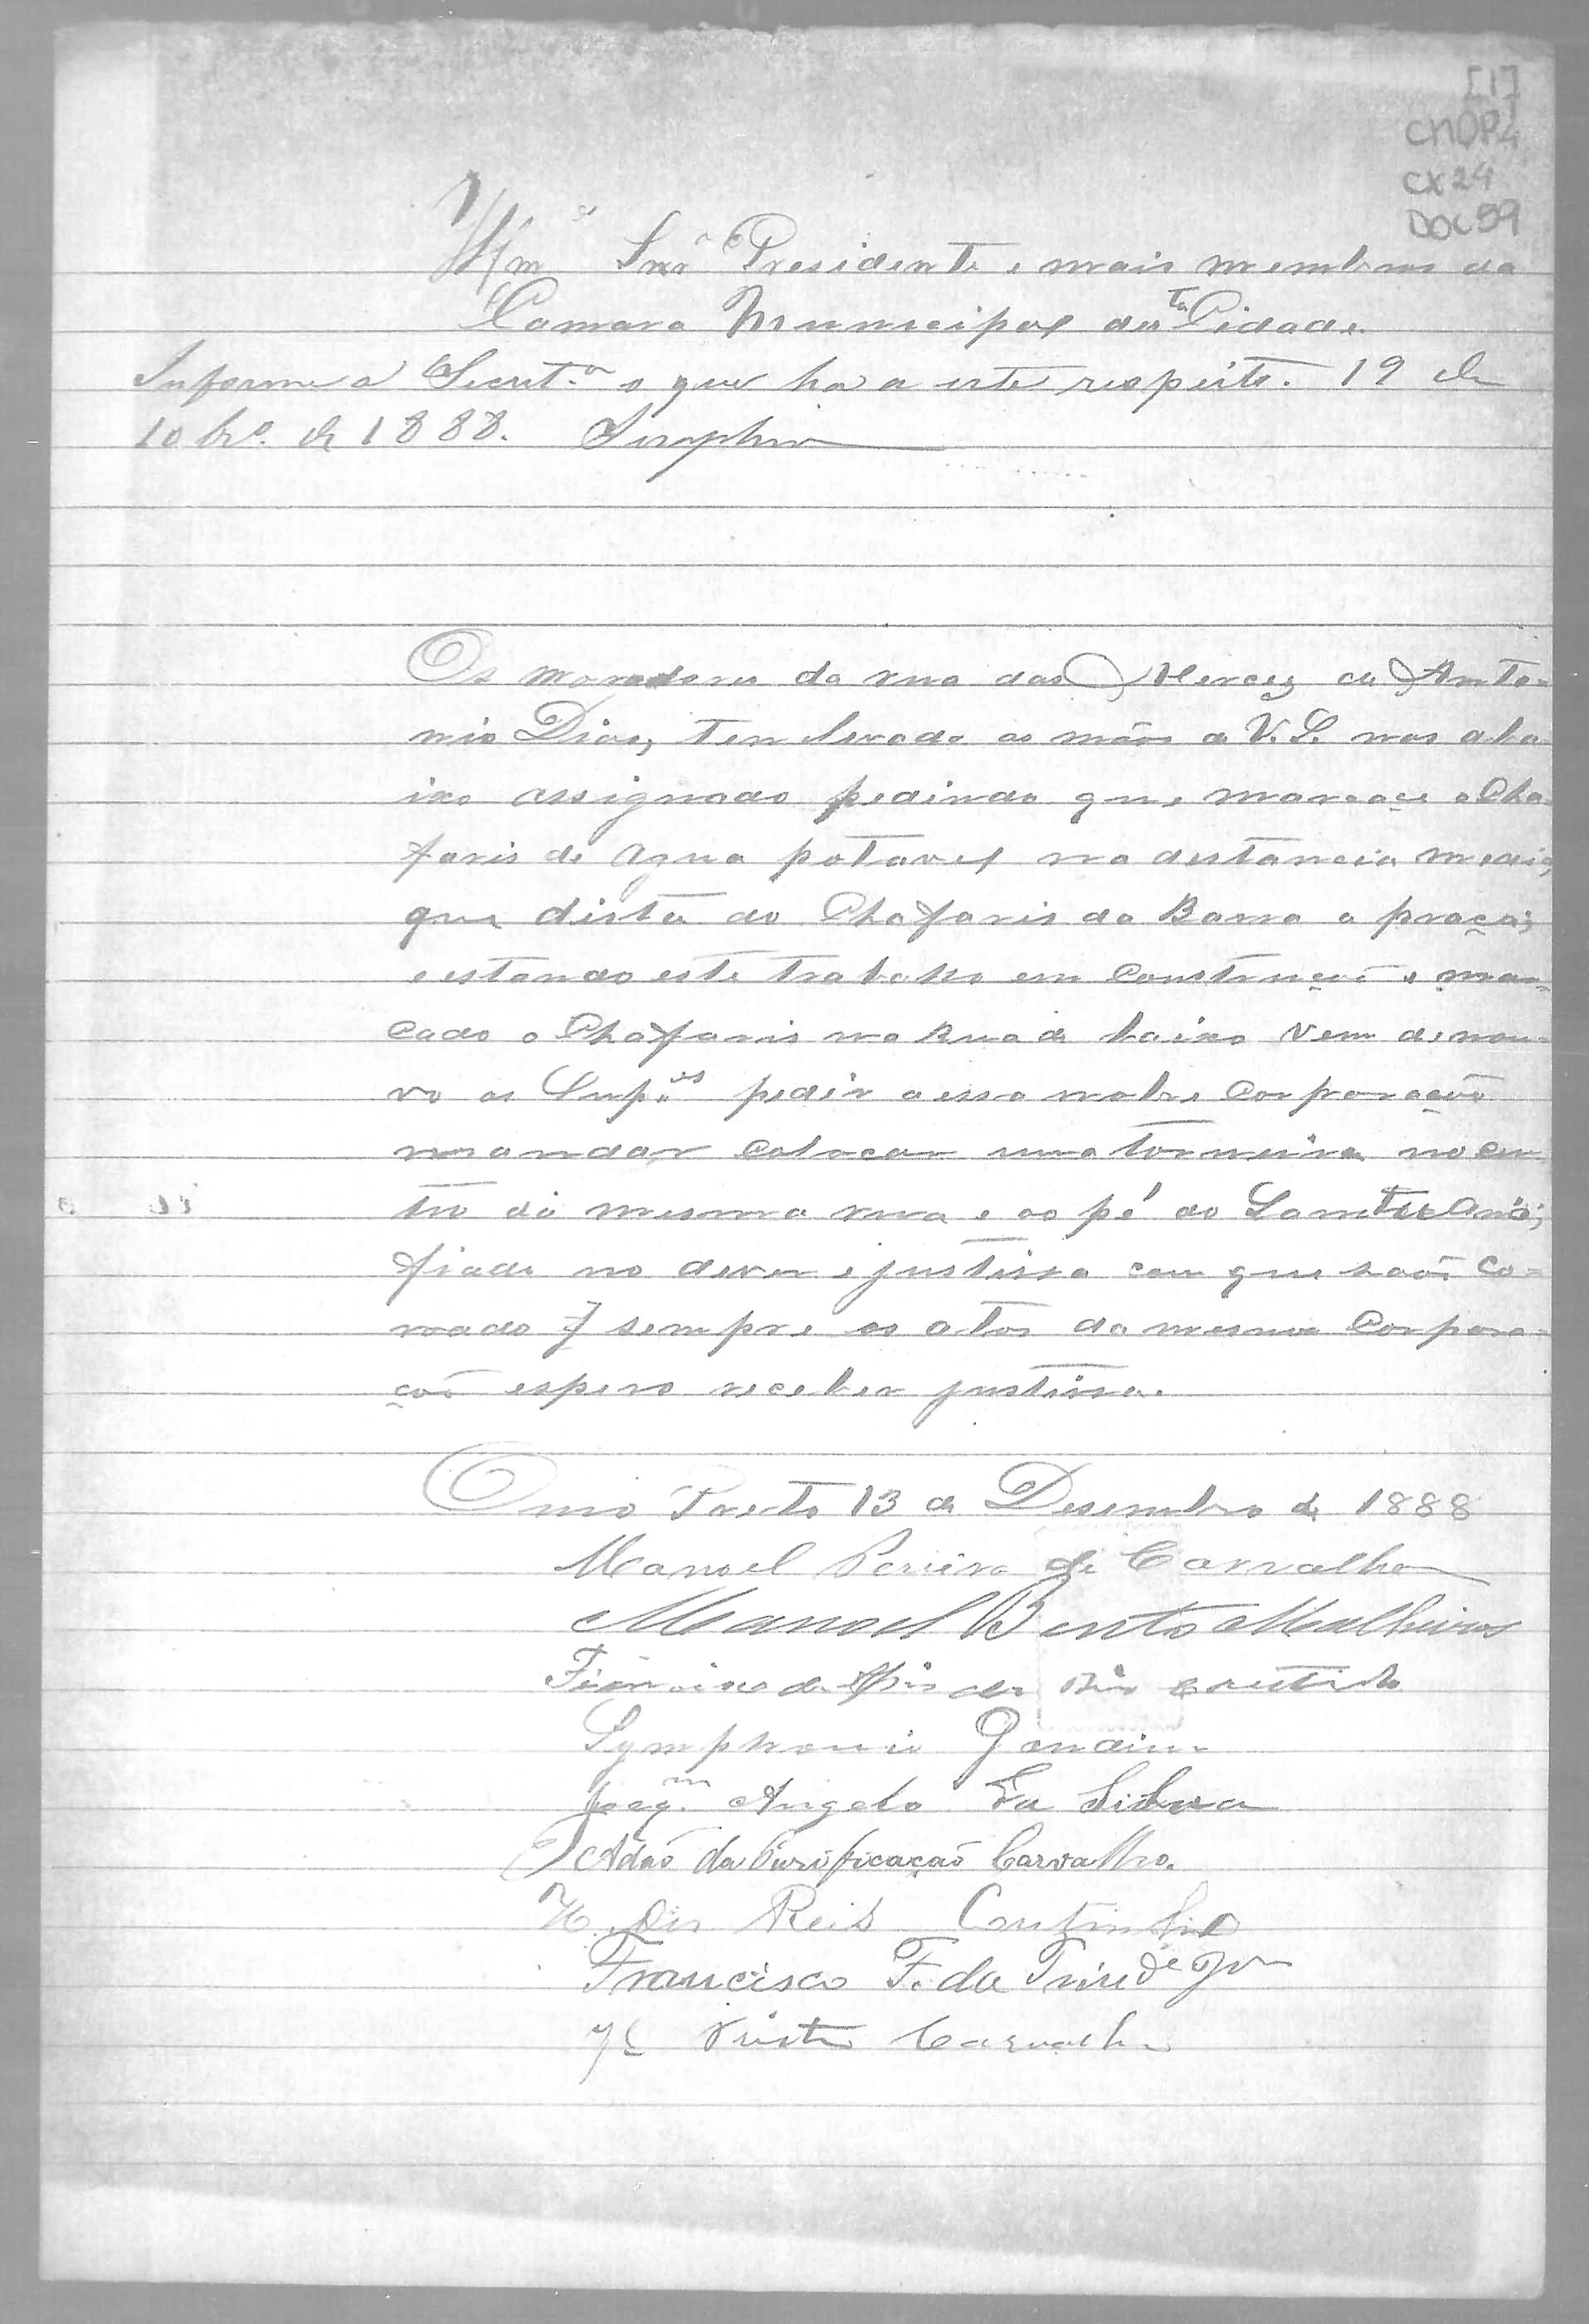 [1]
CMOP
CX 24
DOC 59
Illm.º Snr. Presidente e mais membros da
Camara Municipal desta Cidade.
Informe a Secret.ª o que ha a este respeito. 19 de
10br.º de 1888. Seraphim
Os moradores da rua das Mercez de Anto=
nio Dias, tem levado as mãos a V. S. um aba
ixo assignado pedindo que marcace o Cha
faris de agua potavel na distancia media
que dista do Chafaris da Barra a praça;
e estando este trabalho em construção e mar=
cado o Chafaris na Rua de baixo vem de nou=
vo os Sup.es pedir a essa nobre Corporação
mandar colocar uma torneira no cen
tro da mesma rua e ao pé do
fiado no dever e justissa com que são co=
roado sempre os atos da mesma Corpora=
ção espero receber justissa.
Ouro Preto 13 de Desembro de 1888
Manoel Pereira de Carvalho
Manoel Bento Malheiros
Francisco de
Symphronio
Joaq.m Angelo da Silva
Adão da Purificação Carvalho.
H. dos Reis Coutinho
Francisco F. da Trind.e Jor
Carvalho